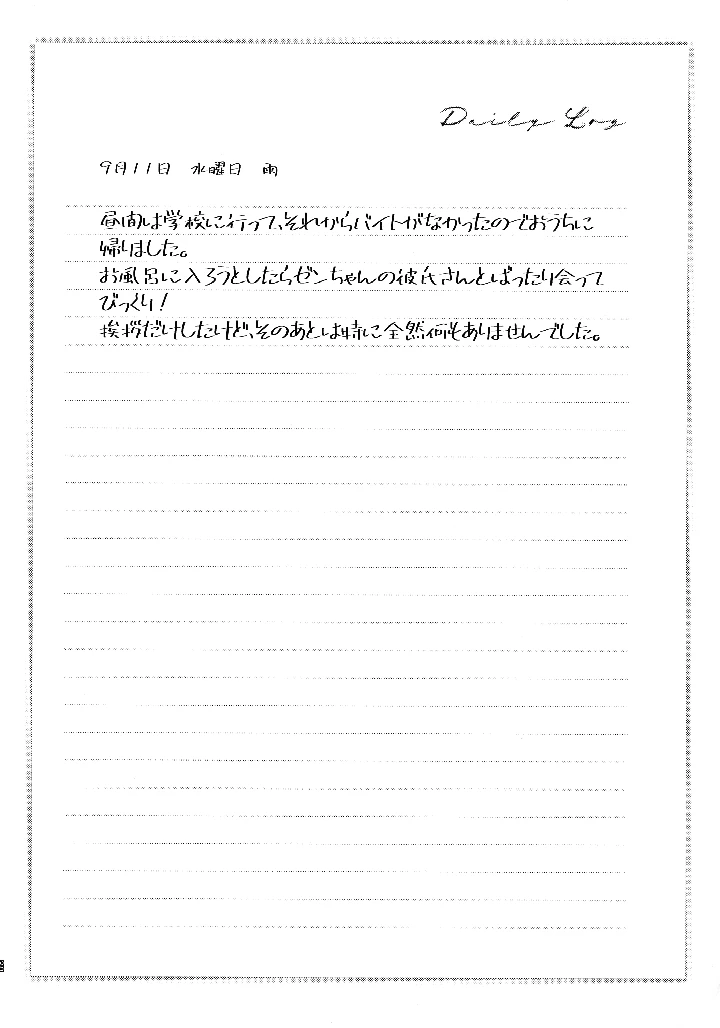 Daily Log
9月11日 水曜日 雨
昼間は学校に行って、それからバイトがなかったのでおうちに
帰りました。
お風呂に入ろうとしたらゼンちゃんの彼氏さんとばったり会って
びっくり!
挨拶だけしたけど、そのあとは特に全然何もありませんでした。